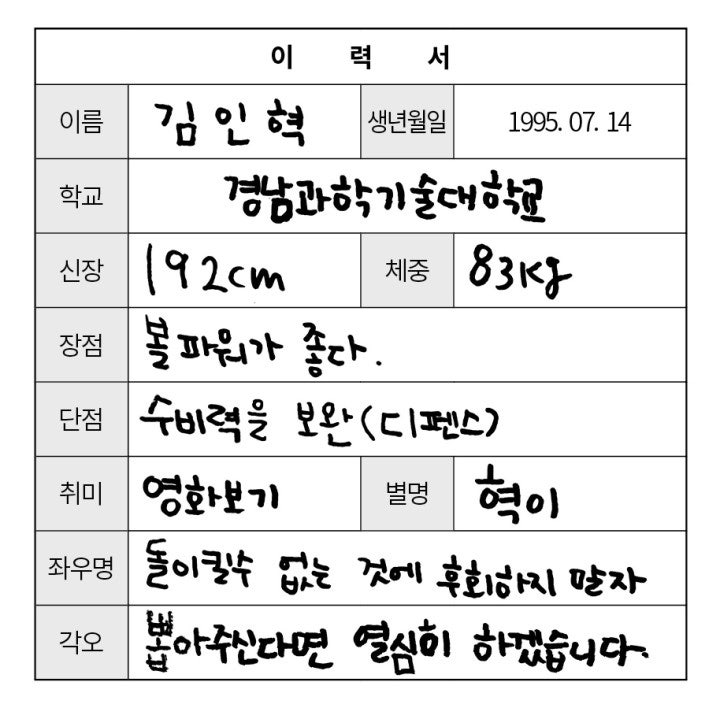 이 력 서
이름 김인혁 생년월일 1995. 07. 14
학교 경남과학기술대학교
신장 192cm 체중 83Kg
장점 볼파워가 좋다.
단점 수비력을 보완(디펜스)
취미 영화보기 별명 혁이
좌우명 돌이킬수 없는 것에 후회하지 말자
각오 뽑아주신다면 열심히 하겠습니다.